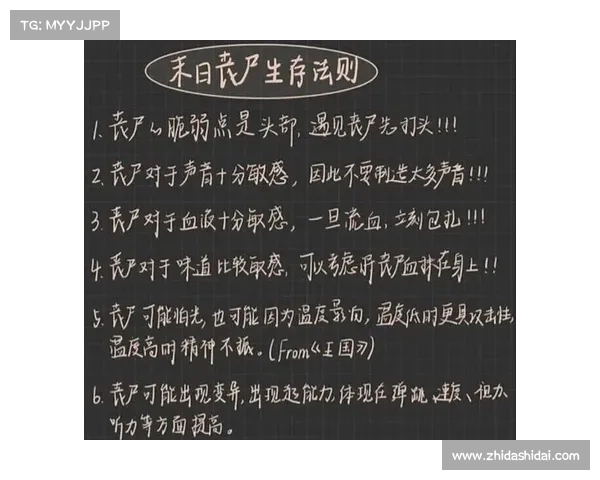 TG: MYYJJPP
末日丧尸生存法则
1. 丧尸的脆弱点是头部，遇见丧尸先打头!!!
2. 丧尸对于声音十分敏感，因此不要制造太多声音!!!
3. 丧尸对于血液十分敏感，一旦流血，立刻包扎!!!
4. 丧尸对于味道比较敏感，可以考虑将丧尸血抹在身上!!
5. 丧尸可能怕光，也可能因为温度影响，温度低时更具攻击性，
温度高时精神不振。(From《王国》)
6. 丧尸可能出现变异，出现超能力，体现在弹跳、速度、视力、
听力等方面提高。
www.zhidashidai.com